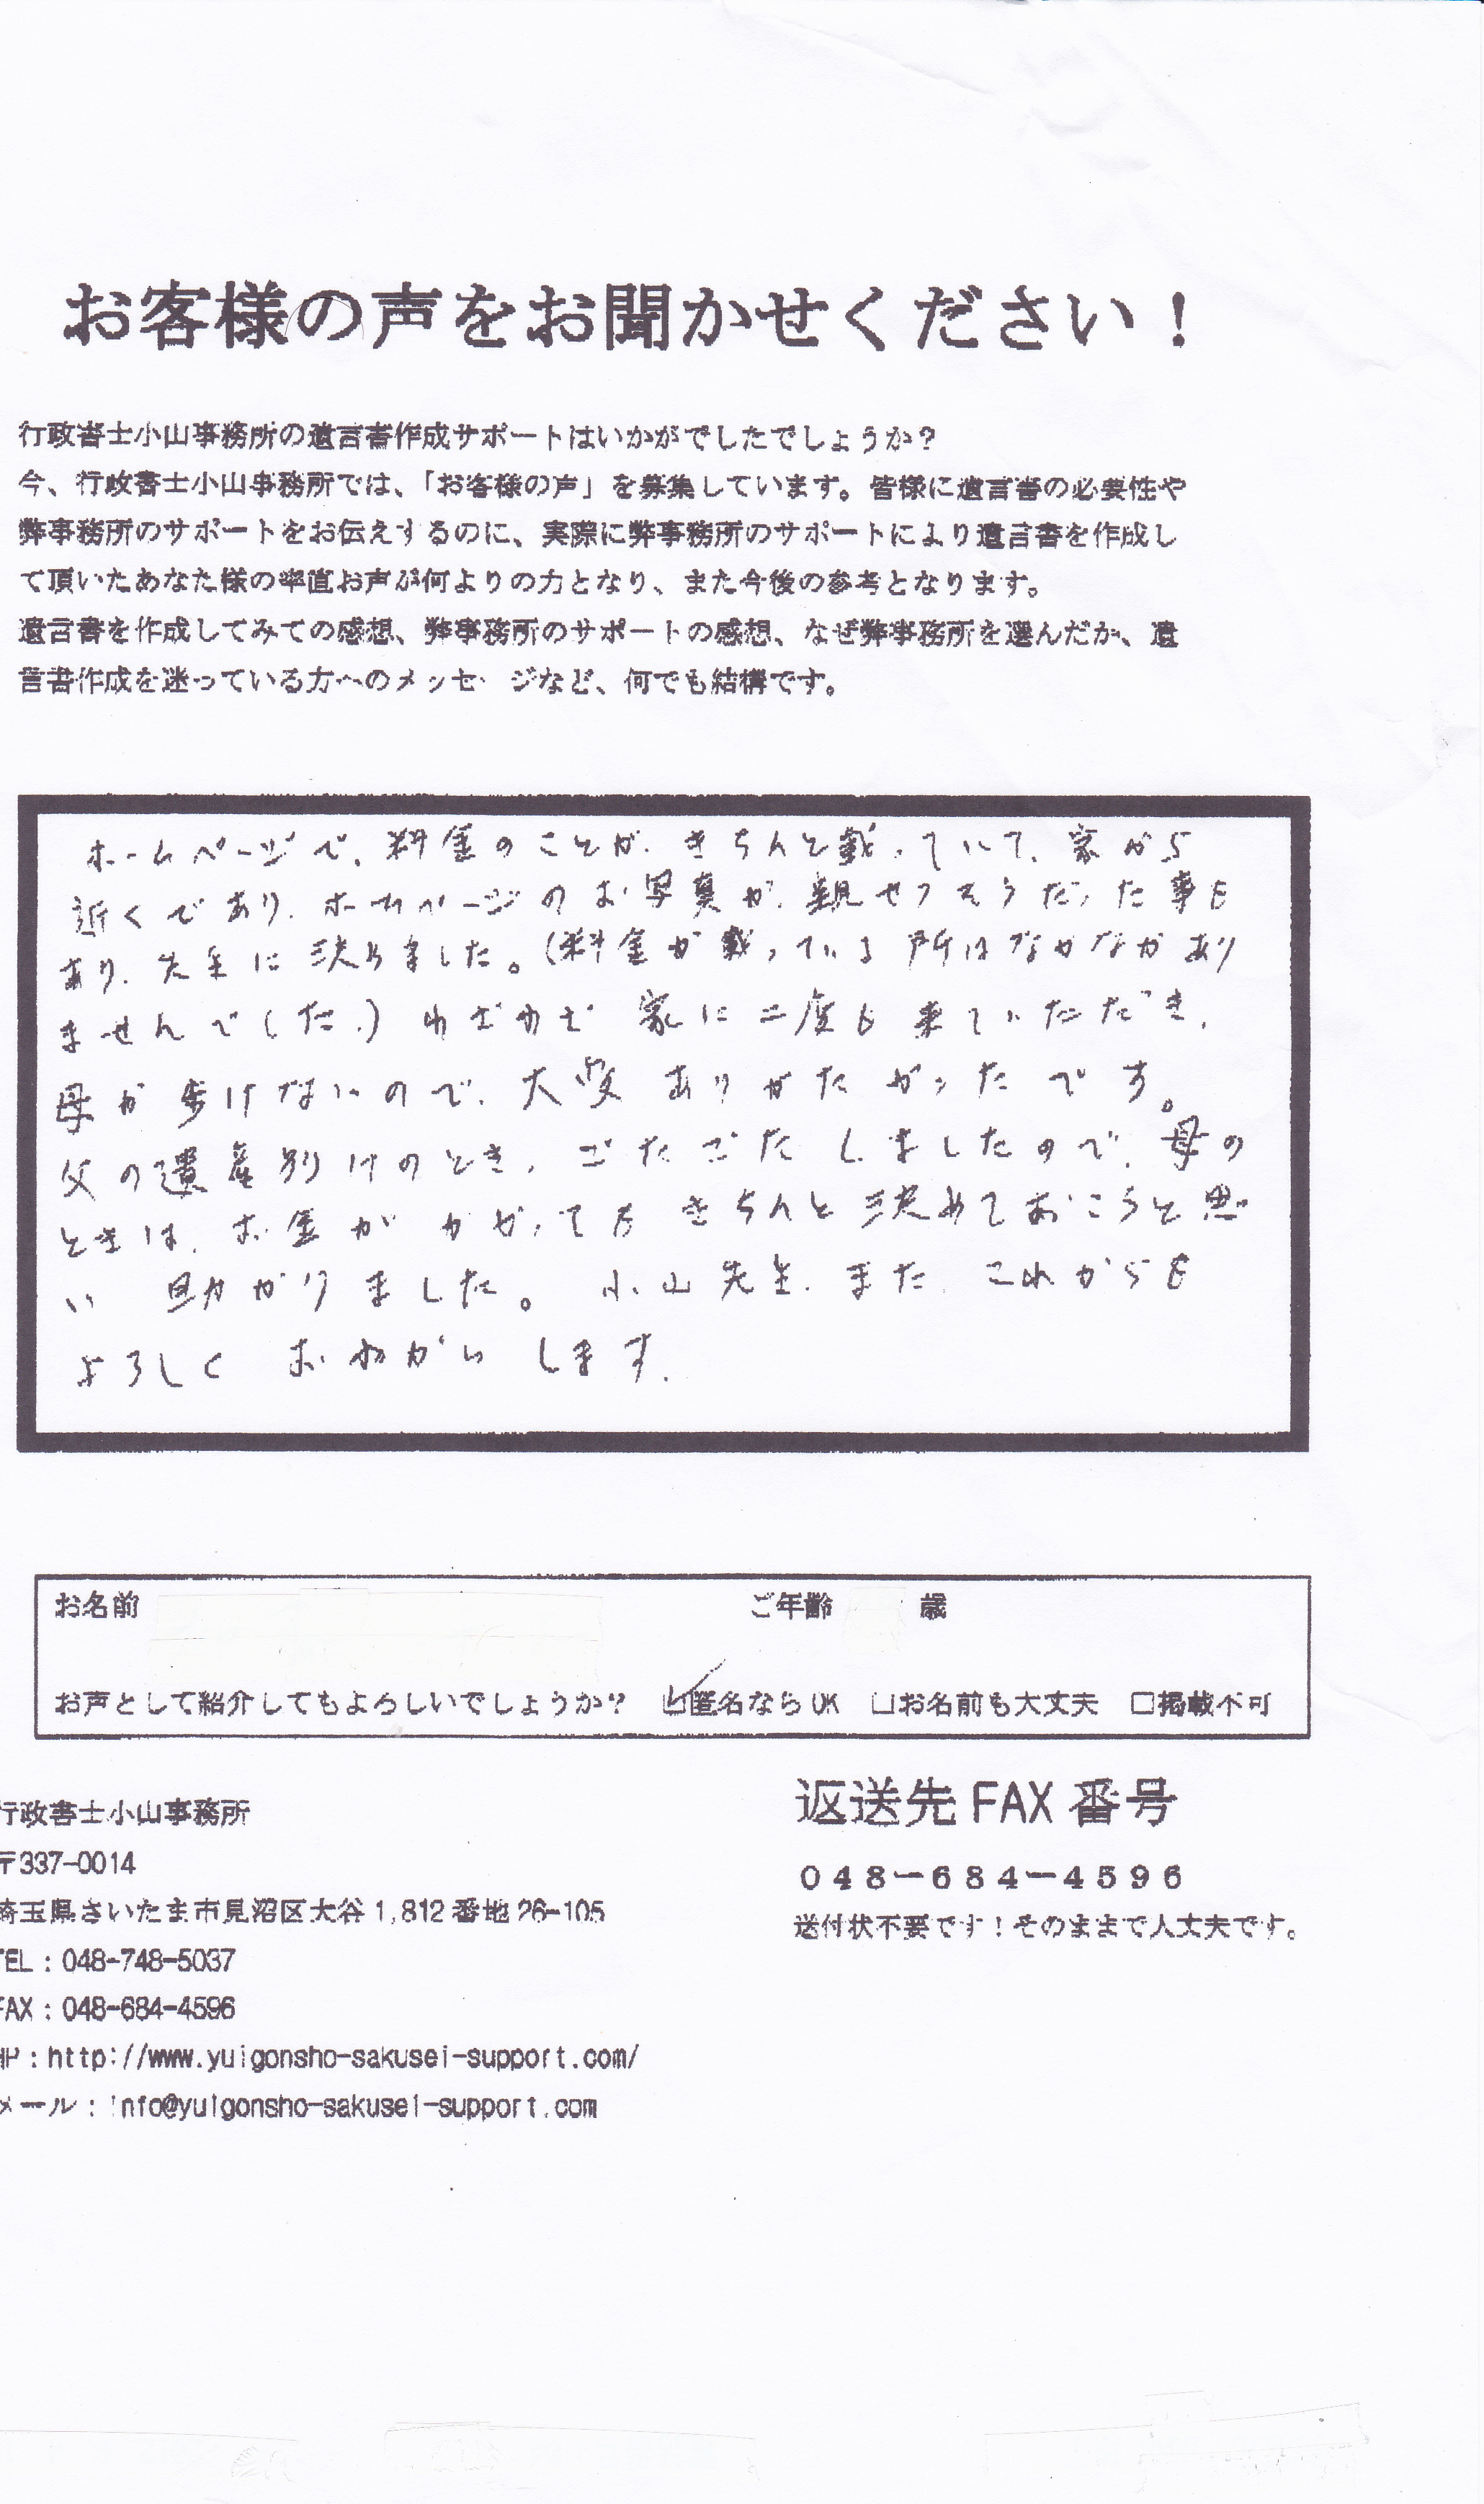 お客様の声をお聞かせください！
行政書士小山事務所の遺言書作成サポートはいかがでしたでしょうか？
今、行政書士小山事務所では、「お客様の声」を募集しています。皆様に遺言書の必要性や
弊事務所のサポートをお伝えするのに、実際に弊事務所のサポートにより遺言書を作成し
て頂いたあなた様の率直お声が何よりの力となり、また今後の参考となります。
遺言書を作成してみての感想、弊事務所のサポートの感想、なぜ弊事務所を選んだか、遺
言書作成を迷っている方へのメッセージなど、何でも結構です。
ホームページで、料金のことが、きちんと載っていて、家から
近くであり、ホームページのお写真が、親せつそうだった事も
あり、先生に決めました。（料金が載っている所はなかなかあり
ませんでした。）わざわざ家に二度も来ていただき、
母が歩けないので、大変ありがたかったです。
父の遺産別けのとき、ごたごたしましたので、母の
ときは、お金がかかってもきちんと決めておこうと思
い 助かりました。 小山先生、また、これからも
よろしく おねがいします。
お名前 ご年齢 歳
お声として紹介してもよろしいでしょうか？ ☑匿名ならOK □お名前も大丈夫 □掲載不可
行政書士小山事務所
〒337-0014
埼玉県さいたま市見沼区大谷1,812番地26-105
TEL：048-748-5037
FAX：048-684-4596
HP：http://www.yuigonsho-sakusei-support.com/
メール：info@yuigonsho-sakusei-support.com
返送先FAX番号
０４８－６８４－４５９６
送付状不要です！そのままで大丈夫です。